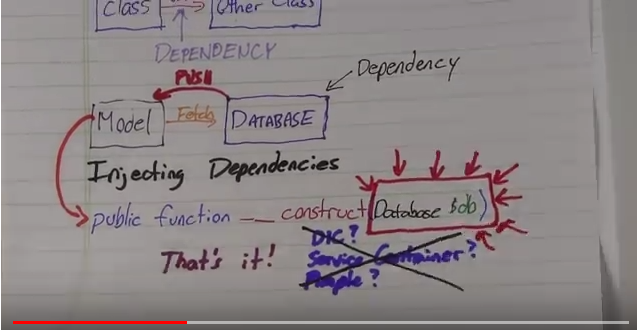 Class Other Class
DEPENDENCY
PUSH
Dependency
Model Fetch DATABASE
Injecting Dependencies
public function __ construct(Database $db)
That's it!
DIC?
Service Container?
Pimple?